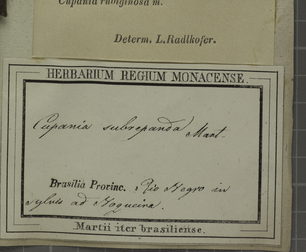 Cupania rubiginosa m.
Determ. L. Radlkofer.
HERBARIUM REGIUM MONACENSE.
Cupania subrepanda Mart
Brasilia Provinc. Rio Negro in
sylvis ad Nogueira.
Martii iter brasiliense.